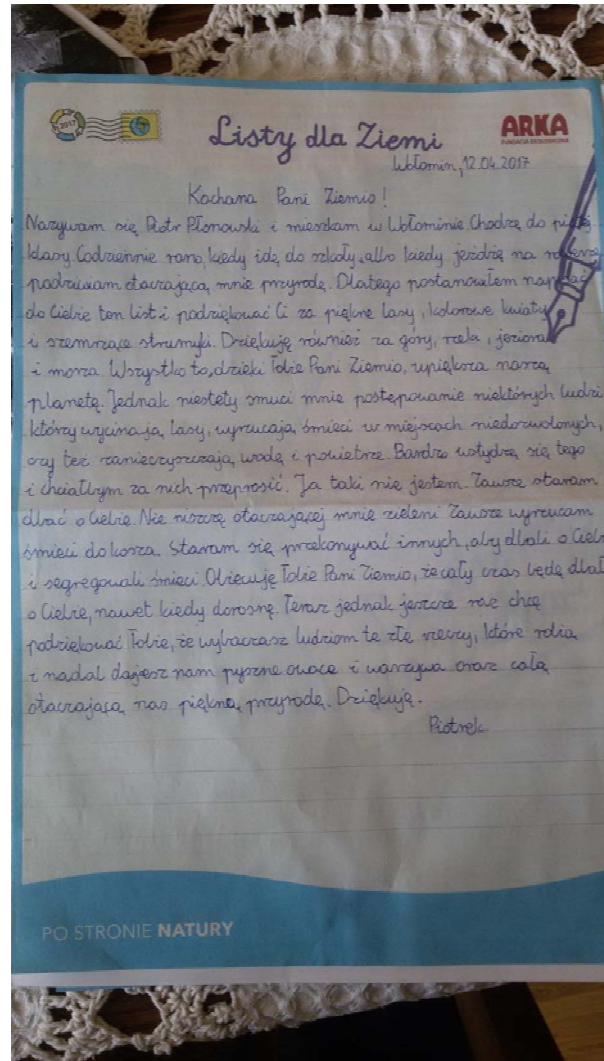 2017
Listy dla Ziemi
ARKA
FUNDACJA EKOLOGICZNA
Wołomin, 12.04.2017
Kochana Pani Ziemio!
Nazywam się Piotr Płonowski i mieszkam w Wołominie. Chodzę do piątej
klasy. Codziennie rano, kiedy idę do szkoły, albo kiedy jeżdżę na rowerze
podziwiam otaczającą mnie przyrodę. Dlatego postanowiłem napisać
do Ciebie ten list i podziękować Ci za piękne lasy, kolorowe kwiaty
i szemrzące strumyki. Dziękuję również za góry, rzeki, jeziora
i morza. Wszystko to, dzięki Tobie Pani Ziemio, upiększa naszą
planetę. Jednak niestety smuci mnie postępowanie niektórych ludzi
którzy wycinają lasy, wyrzucają śmieci w miejscach niedozwolonych,
czy też zanieczyszczają wodę i powietrze. Bardzo wstydzę się tego
i chciałbym za nich przeprosić. Ja taki nie jestem. Zawsze staram
dbać o Ciebie. Nie niszczę otaczającej mnie zieleni. Zawsze wyrzucam
śmieci do kosza. Staram się przekonywać innych, aby dbali o
i segregowali śmieci. Obiecuję Tobie Pani Ziemio, że cały czas będę dbał
o Ciebie, nawet kiedy dorosnę. Teraz jednak jeszcze raz chcę
podziękować Tobie, że wybaczasz ludziom te złe rzeczy, które robią
i nadal dajesz nam pyszne owoce i warzywa oraz całą
otaczającą nas piękną przyrodę. Dziękuję.
Piotrek
PO STRONIE NATURY